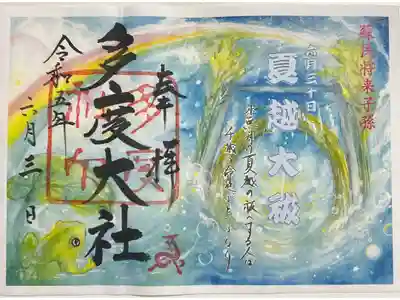 蘇民将来子孫
六月三十日
夏越大祓
水無月の夏越の祓へする人は
千歳の命のぶといふなり
奉拝
多度大社
令和五年
六月三日